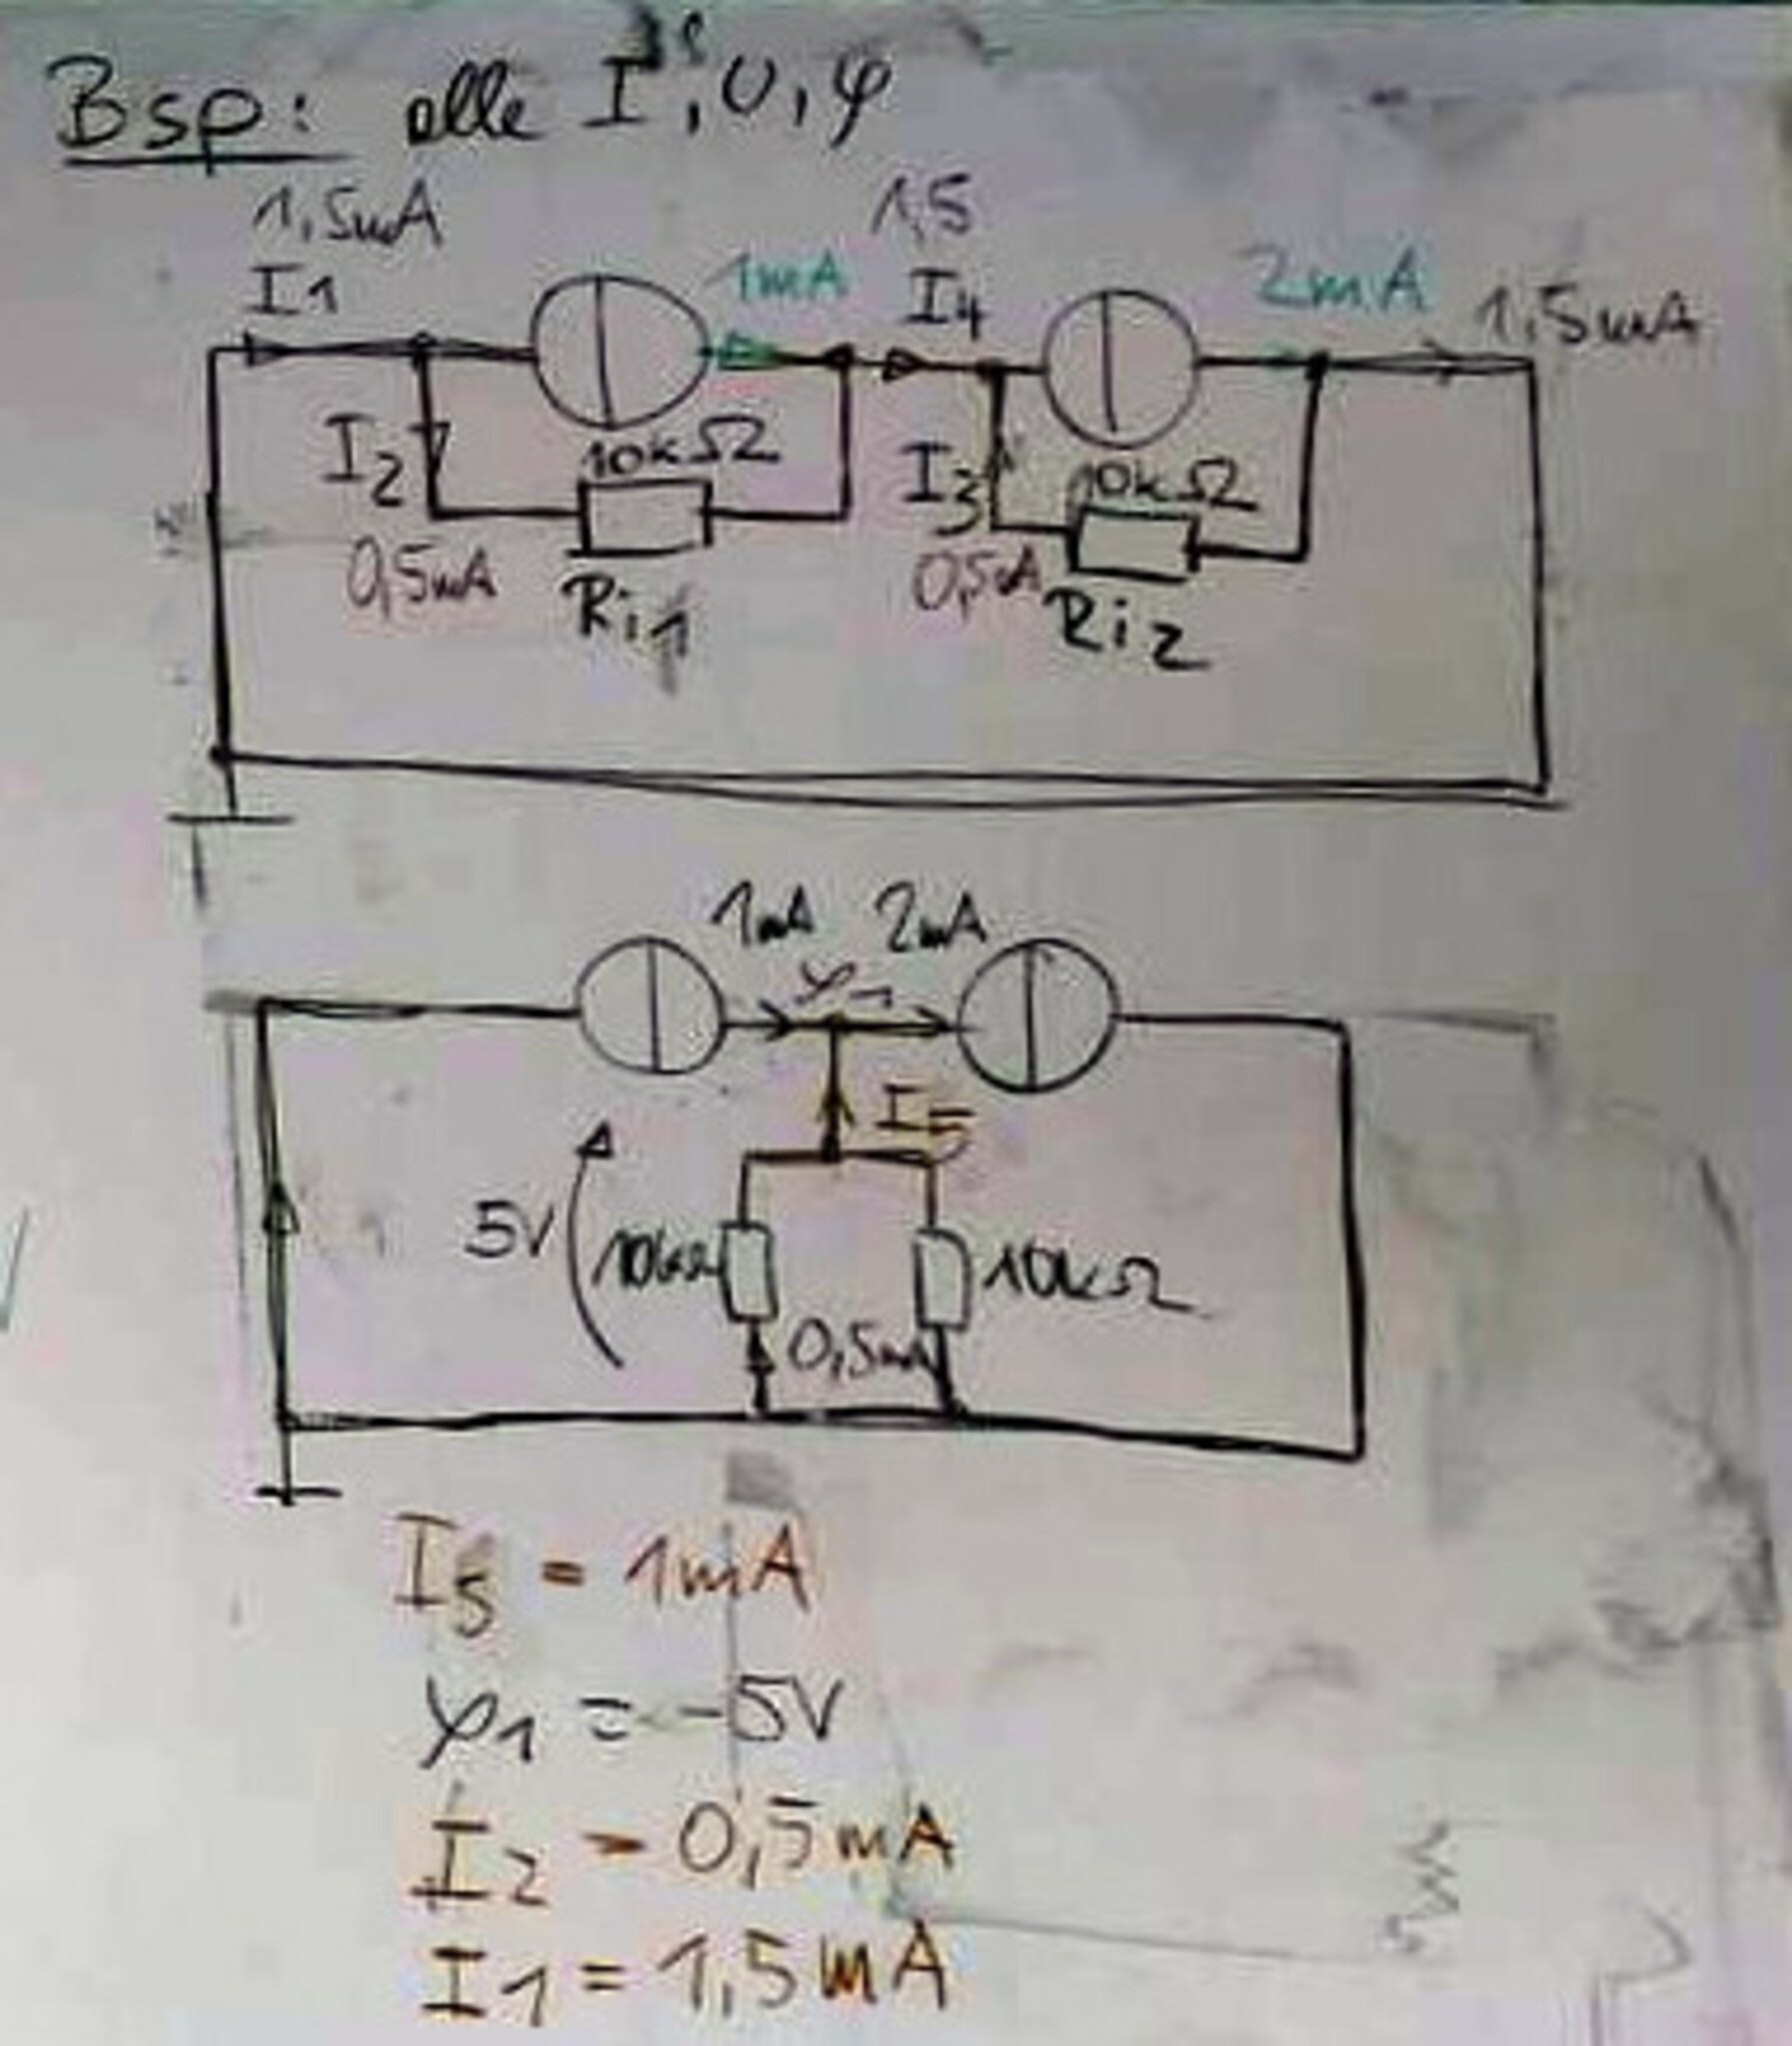 Bsp: alle I's, U, φ
1,5mA
1,5
I1
1mA
I4
2mA
1,5mA
I2
10kΩ
I3
10kΩ
0,5mA
Ri1
0,5mA
Ri2
1mA 2mA
φ1
I5
5V
10kΩ
10kΩ
0,5mA
I5 = 1mA
φ1 = -5V
I2 = 0,5mA
I1 = 1,5mA